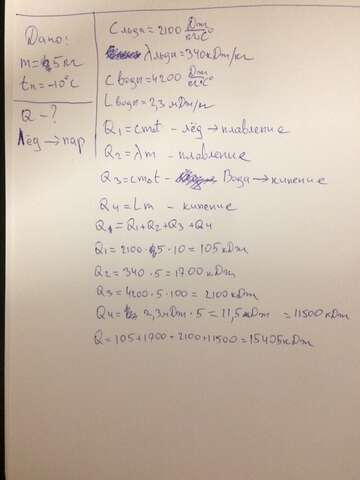 Дано:
m=5кг
tн=-10°C
Q-?
Лёд→пар
Cльда=2100 Дж/кг°C
λльда=340кДж/кг
Cводы=4200 Дж/кг°C
Lводы=2,3мДж/кг
Q1=cm∆t - лёд→плавление
Q2=λm - плавление
Q3=cm∆t - Вода→кипение
Q4=Lm - кипение
Q=Q1+Q2+Q3+Q4
Q1=2100·5·10=105кДж
Q2=340·5=1700кДж
Q3=4200·5·100=2100кДж
Q4=2,3мДж·5=11,5мДж=11500кДж
Q=105+1700+2100+11500=15405кДж